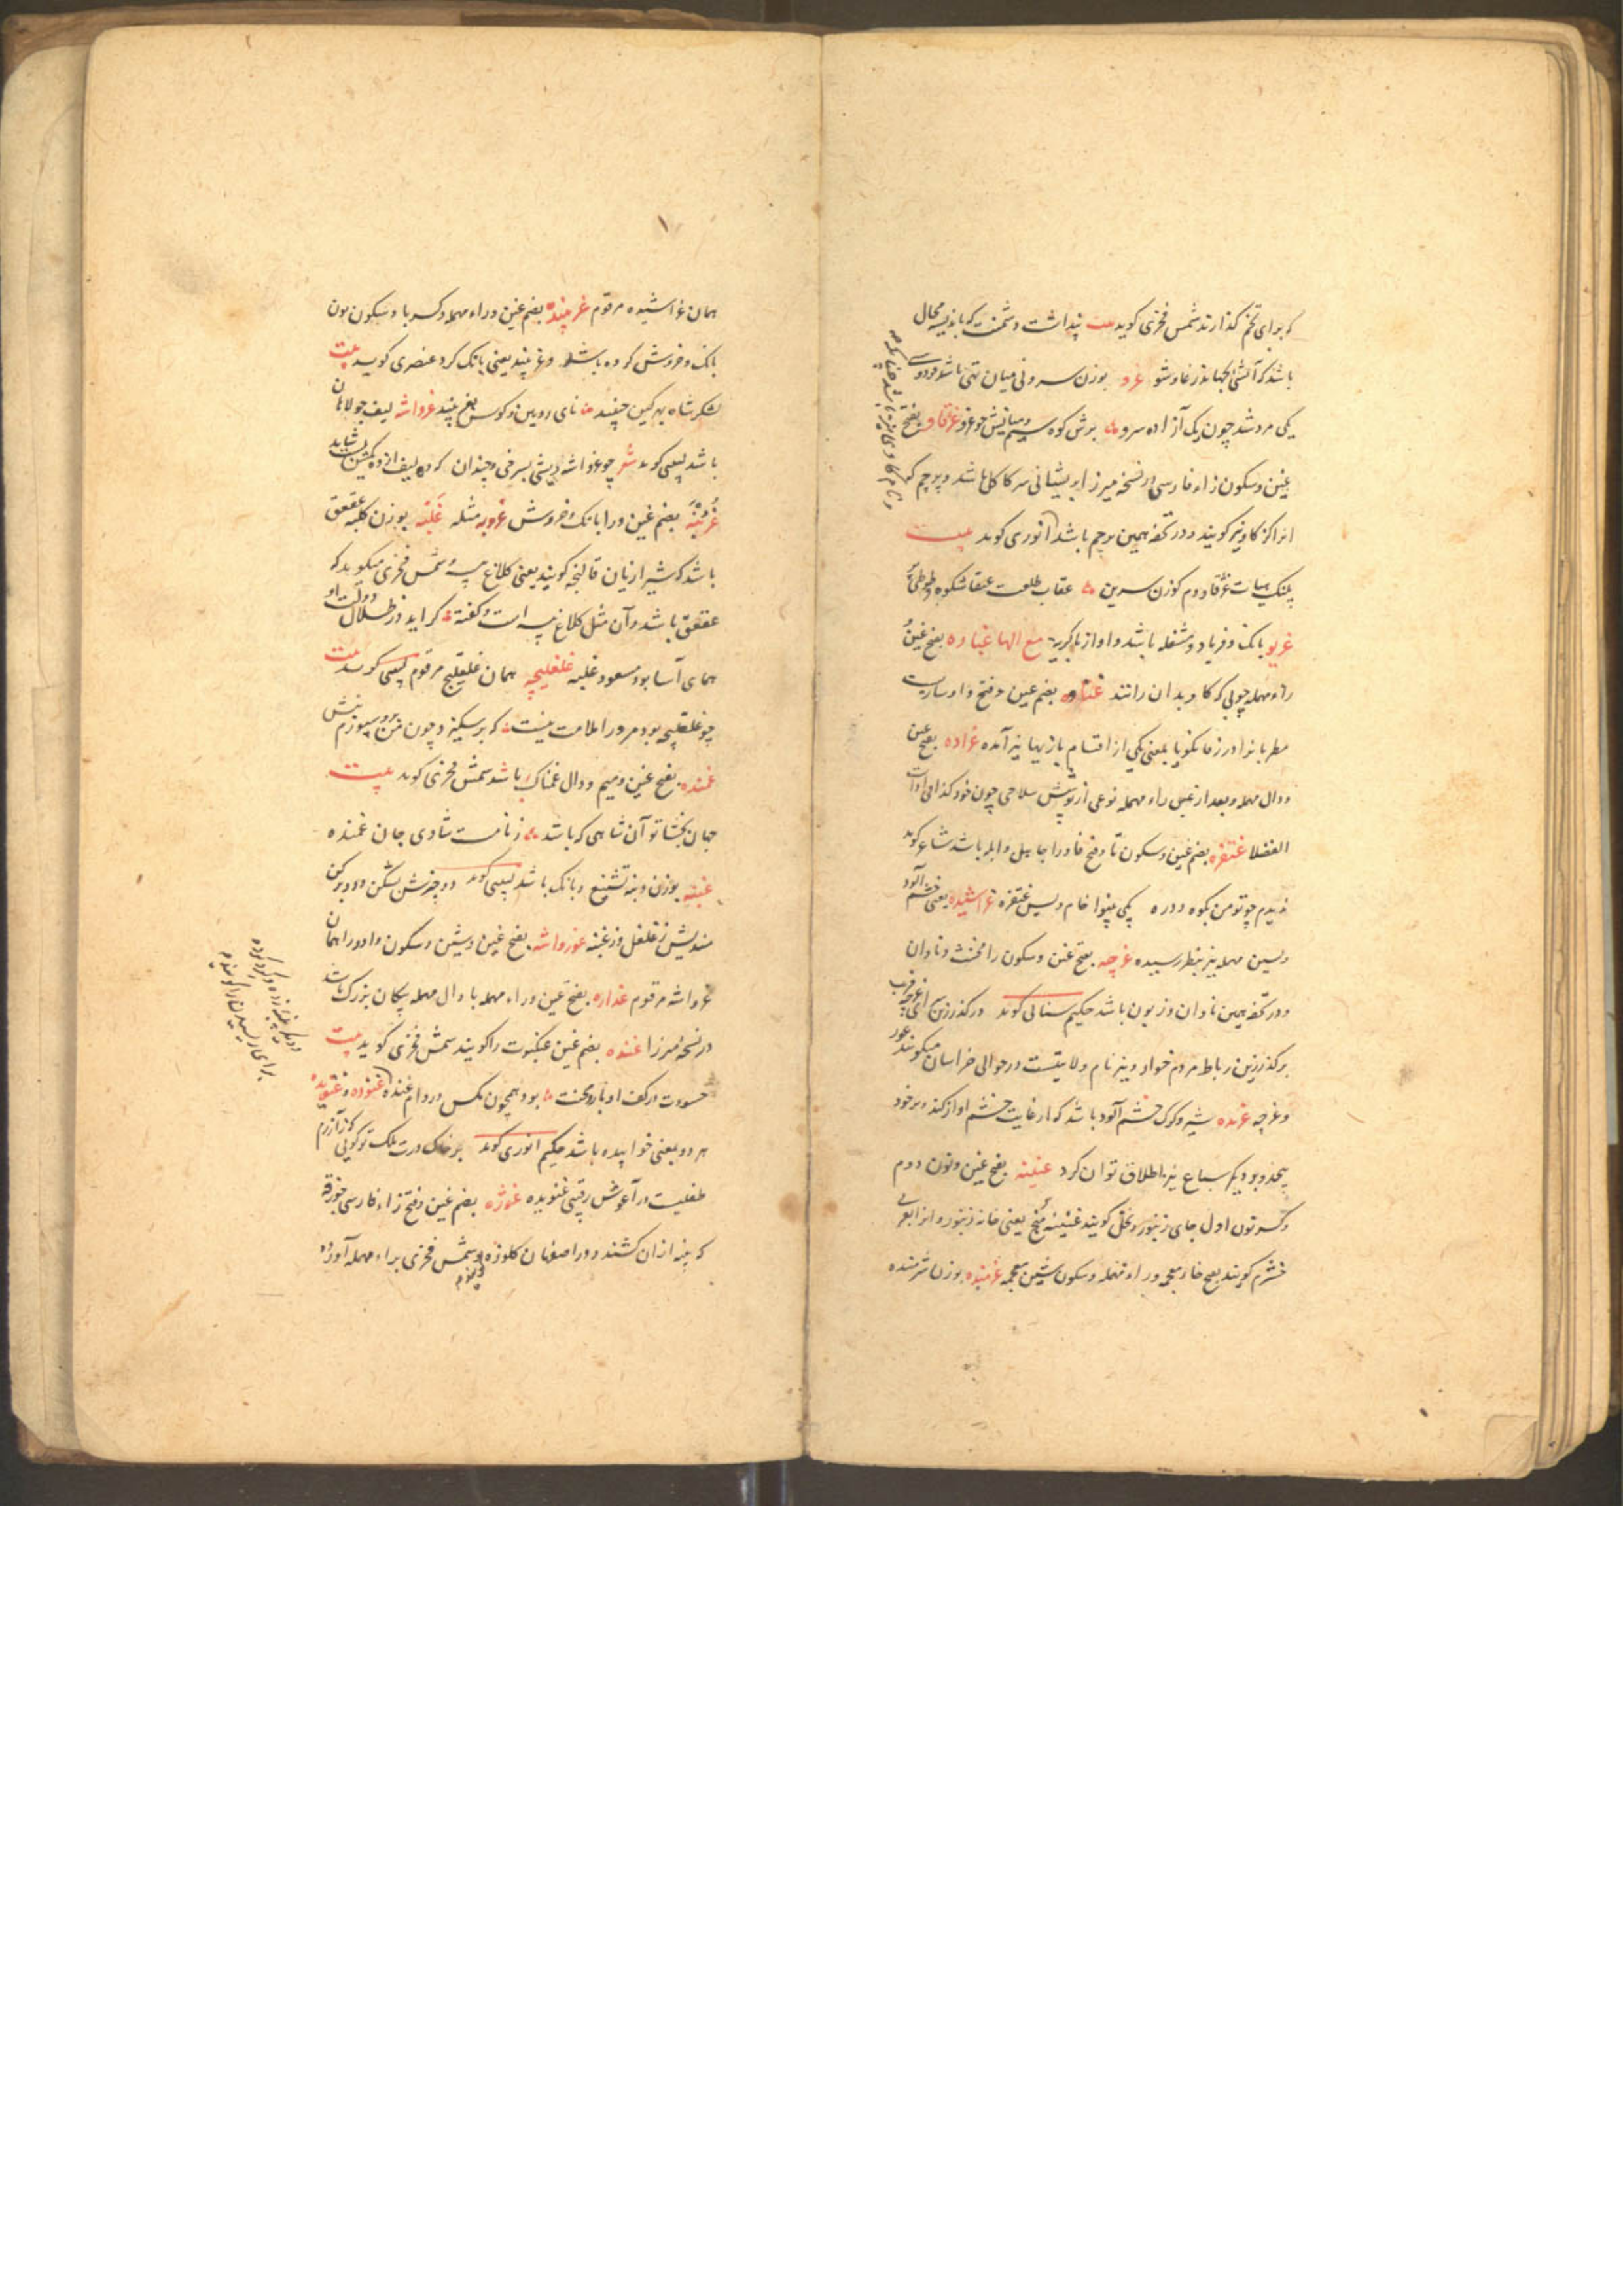 که برای تخم گذارند شمس فخری گوید بیت پنداشت دشمنت که باندیشه محال
باشد که آتش بجهاند ز غاوشو غرو بوزن سرو نی میان تهی باشد فردوسی
یکی مرد شد چون یک آزاده سرو برش کوه سیم و میانش چو غرو غژغاو بفتح
غین و سکون زاء فارسی در نسخه میرزا ابریشمانی سر کاکل باشد و پرچم که
انرا گژگاو نیز گویند و در تحفه همین پرچم باشد انوری گوید بیت
پلنک هیبات غژغاو دم گوزن سرین عقاب طلعت عنقا شکوه و طوطی پر
غریو بانک و فریاد و مشغله باشد و آواز با گریه مع الها غباره بفتح غین و
راء مهمله چوبی که گاو بدان رانند غناوه بضم غین و فتح واو سازیست
مطربانرا و رزفانگویا بمعنی یکی از اقسام بازیها نیز آمده غراده بفتح غین
و دال مهمله و بعد از غین راء مهمله نوعی از پوشش سلاحی چون خود کذا فی ادات
الفضلا غتفره بضم غین و سکون تا و فتح فا و را جاهل و ابله باشد شاعر گوید
ندیدم چو تو من بکوه و دره یکی بینوا خام و بس غتفره غراشیده یعنی خشم آلود
و بسین مهمله نیز بنظر رسیده غرچه بفتح غین و سکون را مخنث و نادان
و در تحفه همین نادان و زبون باشد حکیم سنائی گوید در گذر زین
بر گذر زین رباط مردم خوار و نیز نام ولایتست در حوالی خراسان میگویند غور
و غرچه غرنده شیر و گرگ خشم آلود باشد که از غایت خشم آواز کند و بر خود
پیچد و بر دیگر سباع نیز اطلاق توان کرد غنینه بفتح غین و نون دوم
و کسر نون اول جای زنبور و نحل گویند غنینه منج یعنی خانه زنبور و انرا بعربی
خشرم گویند بفتح خاء معجمه و راء مهمله و سکون شین معجمه غرمنده بوزن شرمنده
همان غراشیده مرقوم غرنبیده بضم غین و راء مهمله و کسر با و سکون نون
بانک و خروش کرده باشد و غرنبید یعنی بانک کرد عنصری گوید بیت
لشکر شاه بهر کین جنبید نای رویین و کوس بغرنبید غرواشه لیف جولاهان
باشد لبیبی گوید شعر چو غرواشه ریشی بسرخی و چندان که ده لیف از ده یکش شاید
غرنبه بضم غین و را بانک و خروش غروبه مثله غلبه بوزن کلبه عقعق
باشد که شیرازیان قالنجه گویند یعنی کلاغ پیسه شمس فخری میگوید که
عقعق باشد و آن مثل کلاغ پیسه است و گفته گر آید در ظلال دولت او
همای آسا بود مسعود غلبه غلغلیچه همان غلغلیج مرقوم لبیبی گوید بیت
چو غلغلیچه بود مرو را ملامت نیست که بر سکیزد چون من برو سپوزم نیش
غمنده بفتح غین و میم و دال غمناک باشد شمس فخری گوید بیت
جهان بخشا تو آن شاهی که باشد زنامت شادی جان غمنده
غنبه بوزن دنبه تشنیع و بانک باشد لبیبی گوید دو چیزش بشکن و دو برکن
مندیش ز غلغل و ز غنبه غورواشه بفتح غین و شین و سکون واو و را همان
غرواشه مرقوم غداره بفتح غین و راء مهمله با دال مهمله پیکان بزرگ باشد
در نسخه میرزا غنده بضم غین عنکبوت را گویند شمس فخری گوید بیت
حسودت در کف ادبار و محنت بود همچون مکس در دام غنده غنوده و غنویده
هر دو یعنی خوابیده باشد حکیم انوری گوید بر خاک درت ملک تو گویی که ز آزرم
طفلیست در آغوش رقیبی غنویده غوژه بضم غین و فتح زاء فارسی جوزقه
که پنبه از آن کشند و در اصفهان کلوزه گویند و شمس فخری براء مهمله آورده